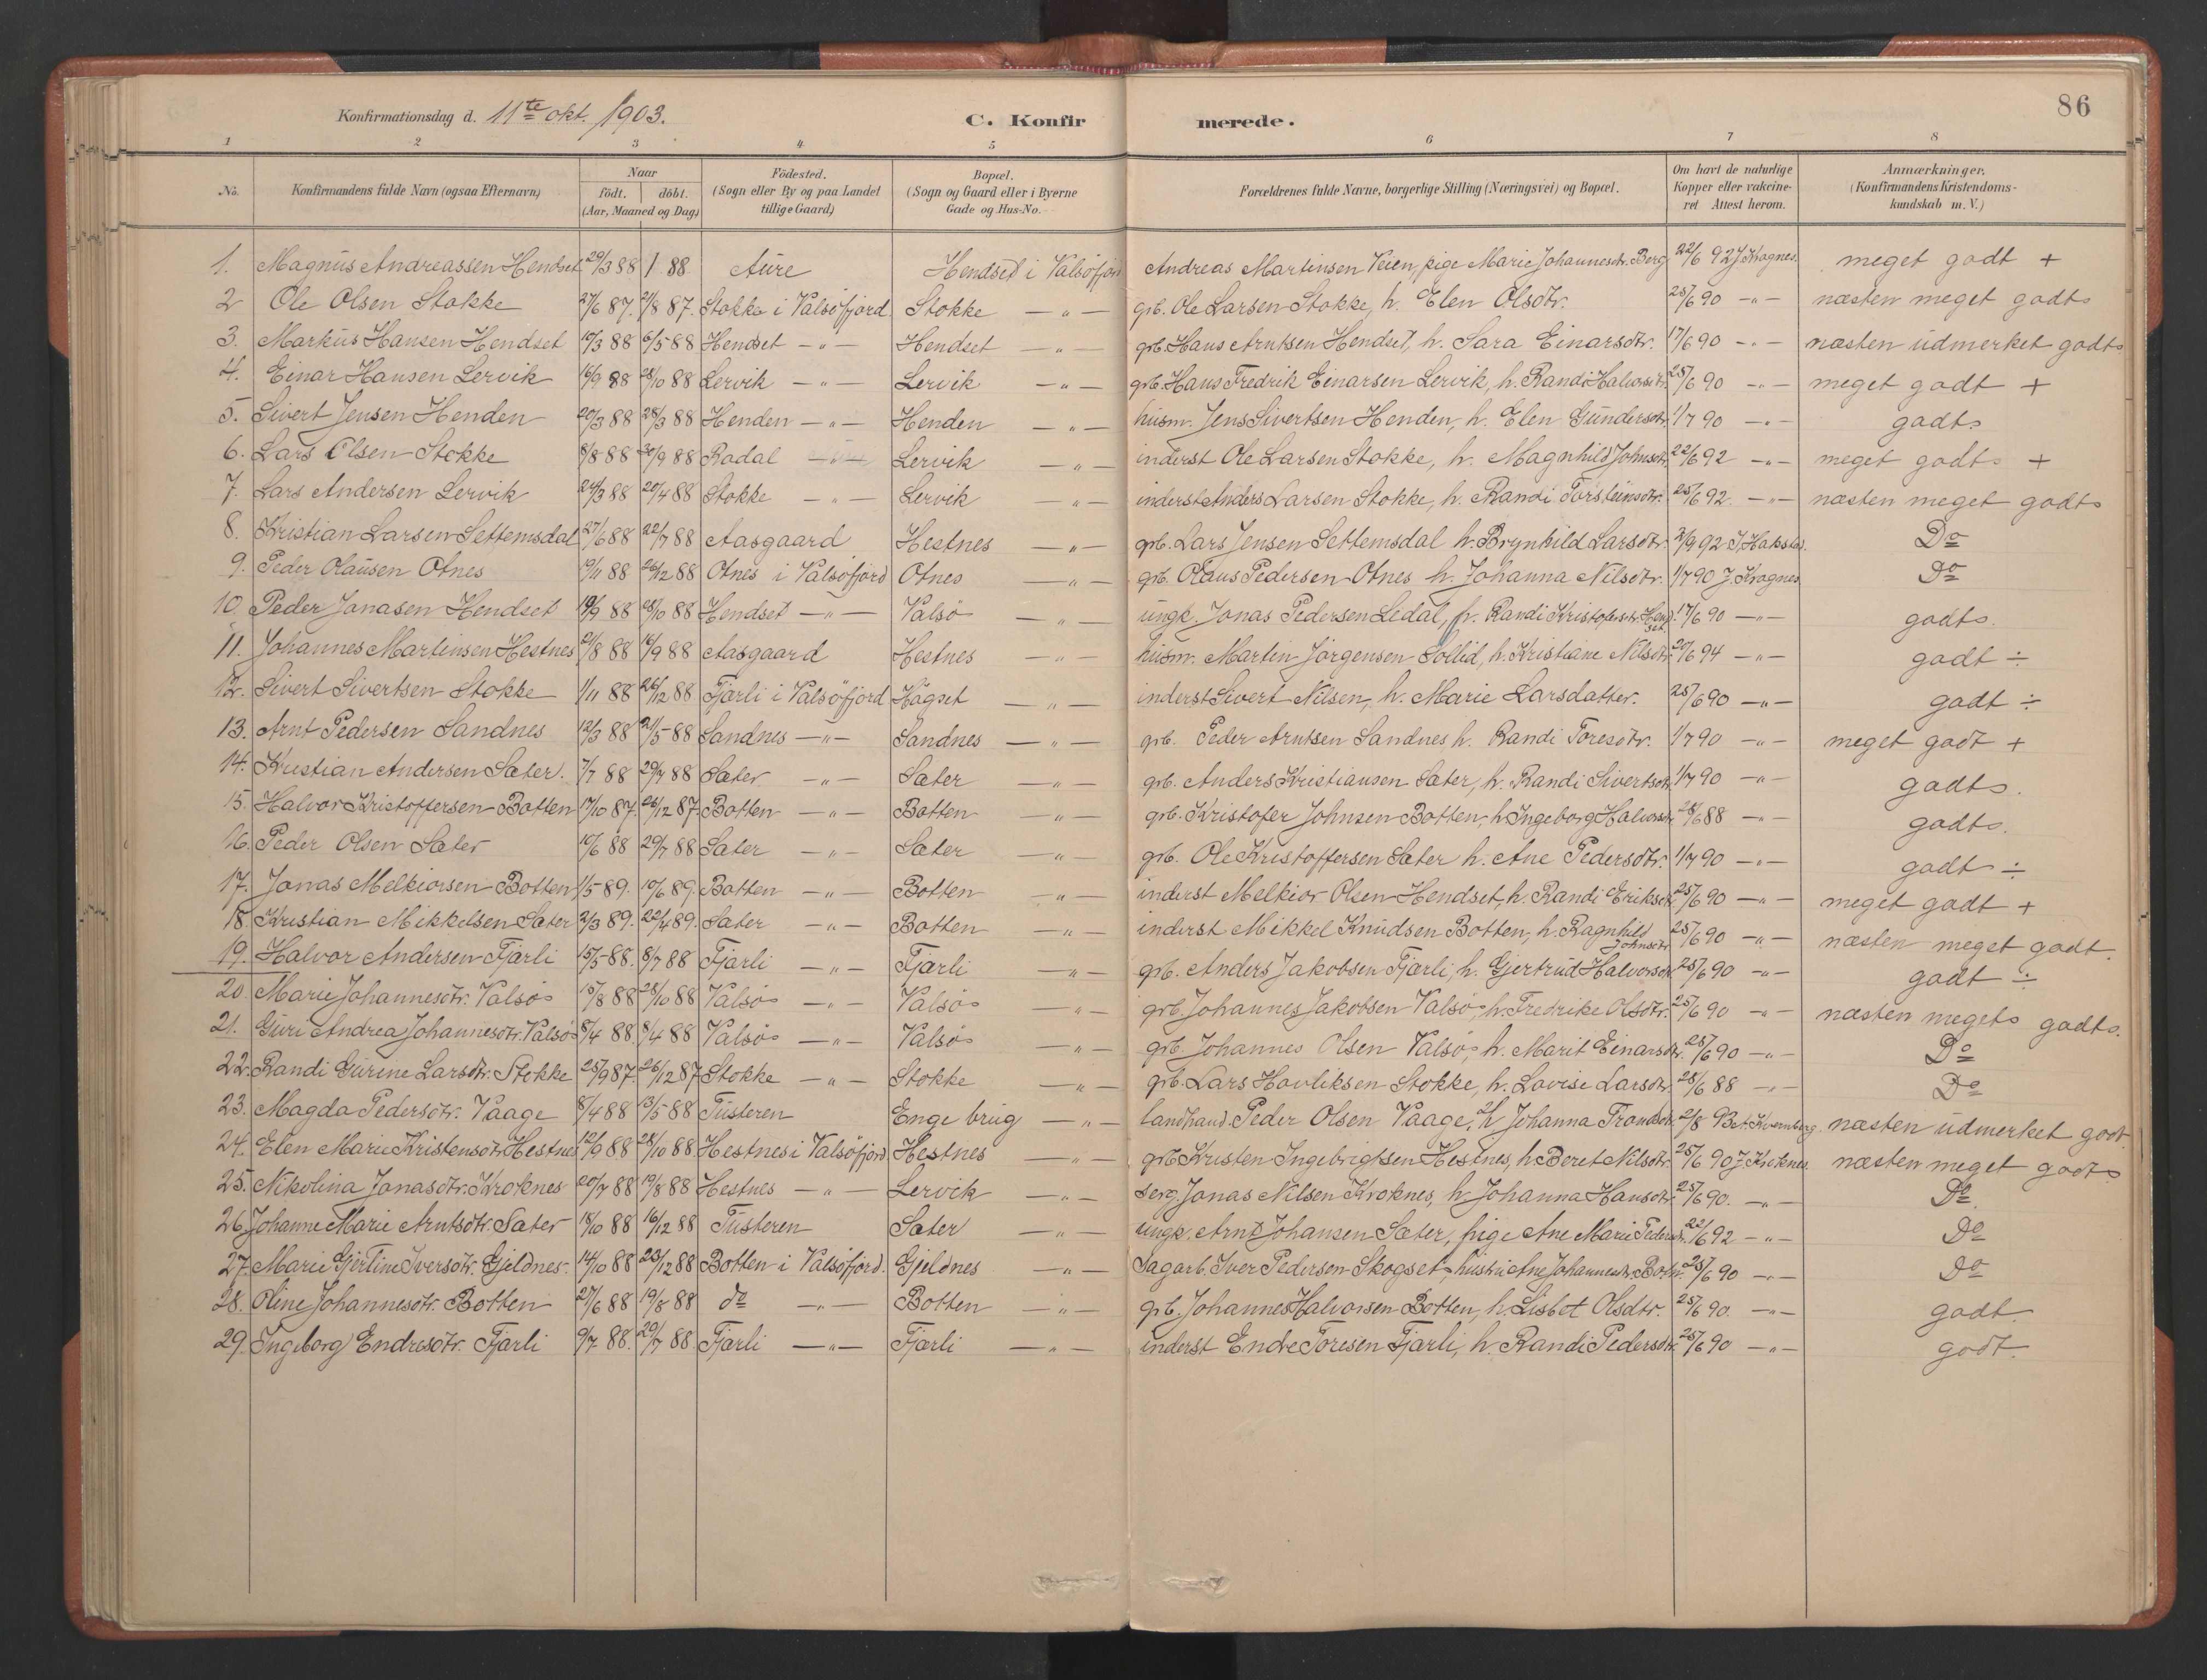 86
Konfirmationsdag d. 11te okt. 1903.
C. Konfir merede.
1 2 3 4 5 6 7 8
No. Konfirmandens fulde Navn (ogsaa Efternavn) Naar födt. döbt. (Aar, Maaned og Dag) Födested. (Sogn eller By og paa Landet tillige Gaard) Bopæl. (Sogn og Gaard eller i Byerne Gade og Hus-No. Forældrenes fulde Navne, borgerlige Stilling (Næringsvei) og Bopæl. Om havt de naturlige Kopper eller vakcineret Attest herom. Anmærkninger. (Konfirmandens Kristendomskundskab m. V.)
1. Magnus Andreassen Hendset 29/3 88 1 88 Aure Hendset i Valsöfjord Andreas Martinsen Veien, pige Marie Johannesdtr. Berg 22/6 92 J. Krognes. meget godt +
2 Ole Olsen Stokke 27/6 87. 21/8 87. Stokke i Valsöfjord Stokke — " — grb. Ole Larsen Stokke, h. Elen Olsdtr. 25/6 90 — " — næsten meget godt
3. Markus Hansen Hendset 10/3 88 6/5 88 Hendset — " — Hendset — " — grb. Hans Arntsen Hendset, h. Sara Einarsdtr. 17/6 90 — " — næsten udmerket godt
4. Einar Hansen Lervik 16/9 88 28/10 88 Lervik — " — Lervik — " — grb. Hans Fredrik Einarsen Lervik, h. Randi Halvorsdtr. 25/6 90 — " — meget godt +
5. Sivert Jensen Henden 20/3 88 28/3 88 Henden — " — Henden — " — husm. Jens Sivertsen Henden, h. Elen Gundersdtr. 1/7 90 — " — godt
6. Lars Olsen Stokke 8/8 88 30/9 88 Rodal — " — Lervik — " — inderst Ole Larsen Stokke, h. Magnhild Johnsdtr. 22/6 92 — " — meget godt +
7. Lars Andersen Lervik 24/3 88 20/4 88 Stokke — " — Lervik — " — inderst Anders Larsen Stokke, h. Randi Torsteinsdtr. 25/6 92. — " — næsten meget godt
8. Kristian Larsen Settemsdal 27/6 88 22/7 88 Aasgaard Hestnes — " — grb. Lars Jensen Settemsdal h. Brynhild Larsdtr. 2/9 92 Do
9. Peder Olausen Otnes 19/11 88 26/12 88 Otnes i Valsöfjord Otnes — " — grb. Olaus Pedersen Otnes h. Johanna Nilsdtr. 1/7 90 J. Krognes Do
10. Peder Jonasen Hendset 19/9 88 28/10 88 Hendset — " — Valsö — " — ungk. Jonas Pedersen Ledal, p. Randi Kristofersdtr. Hendset. 17/6 90 — " — godt.
11. Johannes Martinsen Hestnes 21/8 88 16/9 88 Aasgaard Hestnes — " — husm. Martin Jörgensen Sollid, h. Kristiane Nilsdtr. 20/6 94 — " — godt ÷
12. Sivert Sivertsen Stokke 1/11 88 26/12 88 Fjærli i Valsöfjord Hagset — " — inderst Sivert Nilsen, h. Marie Larsdatter. 25/6 90 — " — godt ÷
13. Arnt Pedersen Sandnes 12/3 88 21/5 88 Sandnes — " — Sandnes — " — grb. Peder Arntsen Sandnes h. Randi Toresdtr. 1/7 90 — " — meget godt +
14. Kristian Andersen Sæter. 7/7 88 29/7 88 Sæter — " — Sæter — " — grb. Anders Kristiansen Sæter, h. Randi Sivertsdtr. 1/7 90 — " — godt.
15. Halvor Kristoffersen Botten 17/10 87. 26/12 87. Botten — " — Botten — " — grb. Kristofer Johnsen Botten, h. Ingeborg Halvorsdtr. 28/6 88 — " — godt.
16. Peder Olsen Sæter 10/6 88 29/7 88 Sæter — " — Sæter — " — grb. Ole Kristoffersen Sæter h. Ane Pedersdtr. 1/7 90 — " — godt ÷
17. Jonas Melkiorsen Botten 1/5 89. 10/6 89. Botten — " — Botten — " — inderst Melkior Olsen Hendset, h. Randi Eriksdtr. 25/6 90 — " — meget godt +
18. Kristian Mikkelsen Sæter 2/3 89. 22/4 89. Sæter — " — Botten — " — inderst Mikkel Knudsen Botten, h. Ragnhild Johnsdtr. 25/6 90 — " — næsten meget godt.
19. Halvor Andersen Fjærli 15/5 88. 8/7 88 Fjærli — " — Fjærli — " — grb. Anders Jakobsen Fjærli, h. Gjertrud Halvorsdtr. 25/6 90 — " — godt ÷
20. Marie Johannesdtr. Valsö 15/8 88 28/10 88 Valsö — " — Valsö — " — grb. Johannes Jakobsen Valsö, h. Fredrike Olsdtr. 25/6 90 — " — næsten meget godt.
21. Guri Andrea Johannesdtr. Valsö 8/4 88. 8/4 88 Valsö — " — Valsö — " — grb. Johannes Olsen Valsö, h. Marit Einarsdtr. 25/6 90 — " — Do
22. Randi Gurine Larsdtr. Stokke 25/9 87. 26/12 87 Stokke — " — Stokke — " — grb. Lars Havliksen Stokke, h. Lovise Larsdtr. 28/6 88 — " — Do
23. Magda Pedersdtr. Vaage 8/4 88 13/5 88 Tusteren Enge brug — " — landhand. Peder Olsen Vaage, h. Johanna Trondsdtr. 2/8 93 næsten udmerket godt.
24. Elen Marie Kristensdtr. Hestnes 12/9 88 28/10 88 Hestnes i Valsöfjord. Hestnes — " — grb. Kristen Ingebrigtsen Hestnes, h. Beret Nilsdtr. 25/6 90 næsten meget godt
25. Nikolina Jonasdtr. Kroknes 20/7 88 19/8 88 Hestnes — " — Lervik — " — Serg. Jonas Nilsen Kroknes, h. Johanna Hansdtr. 25/6 90. — " — Do.
26. Johanne Marie Arntsdtr. Sæter 18/10 88 16/12 88 Tusteren Sæter — " — ungk. Arnt Johansen Sæter, pige Ane Marie Pedersdtr. 22/6 92 — " — Do
27. Marie Gjertine Iversdtr. Gjeldnes. 14/10 88 23/12 88 Botten i Valsöfjord. Gjeldnes — " — Sagarb. Iver Pedersen Skogset, hustru Ane Johannesdtr. Botn. 25/6 90 — " — Do
28. Oline Johannesdtr. Botten 27/6 88 19/8 88 do — " — Botten — " — grb. Johannes Halvorsen Botten, h. Lisbet Olsdtr. 25/6 90. — " — godt.
29. Ingeborg Endresdtr. Fjærli 9/7 88. 29/7 88. Fjærli — " — Fjærli — " — inderst Endre Toresen Fjærli, h. Randi Pedersdtr. 25/6 90 — " — godt.